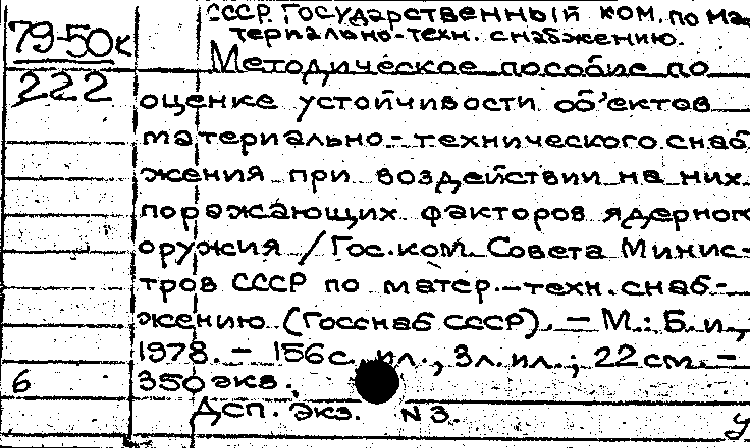 СССР. Государственный ком. по ма-
териально-техн. снабжению.
79-50к
222
Методическое пособие по
оценке устойчивости об'ектов
материально-технического снаб
жения при воздействии на них
поражающих факторов ядерного
оружия / Гос.ком. Совета Минис-
тров СССР по матер.-техн. снаб-
жению (Госснаб СССР). - М.: Б.и.,
1978. - 156с. ил., 3л. ил.; 22см. -
6 350экз.
Дсп. Экз. N3.
У